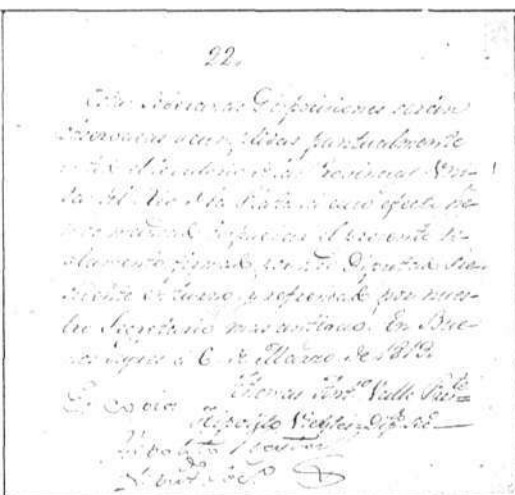 22.
Estas Soberanas Disposiciones serán
observadas y cumplidas puntualmente
en el territorio de las Provincias Uni-
das del Rio de la Plata á cuyo efecto he-
mos mandado el presente Re-
glamento firmado por nro Diputado Pre-
sidente en turno, y refrendado por nues-
tro Secretario mas antiguo. En Bue-
nos Ayres á 6 de Marzo de 1813.
Thomas Antº Valle Presте
Es copia
Hipolito Vieytes Dipdo
Hipolito Vieytes